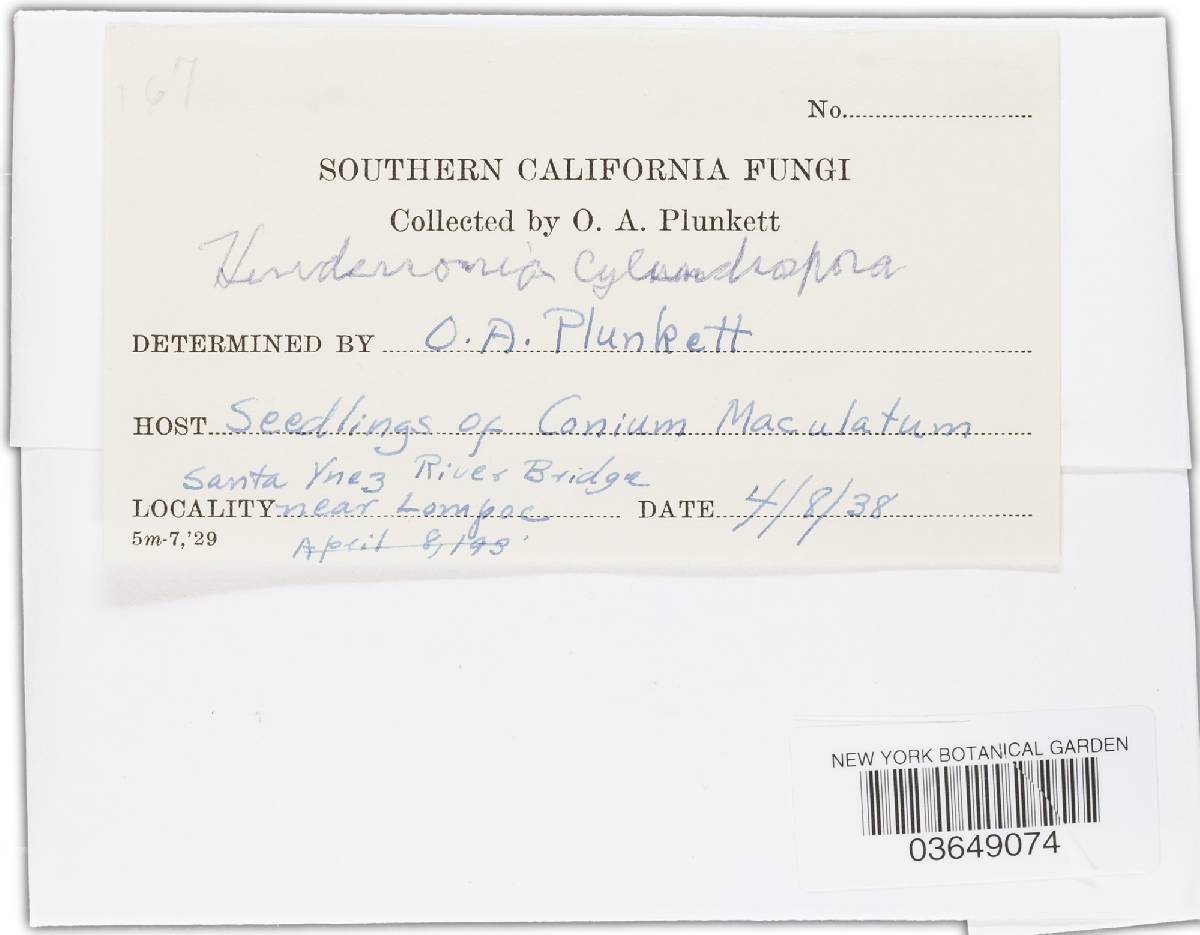 167
No.
SOUTHERN CALIFORNIA FUNGI
Collected by O. A. Plunkett
Hendersonia Cylindrospora
DETERMINED BY O. A. Plunkett
HOST Seedlings of Conium Maculatum
Santa Ynez River Bridge
LOCALITY near Lompoc DATE 4/8/38
5m-7,'29 April 8, 193
NEW YORK BOTANICAL GARDEN
03649074